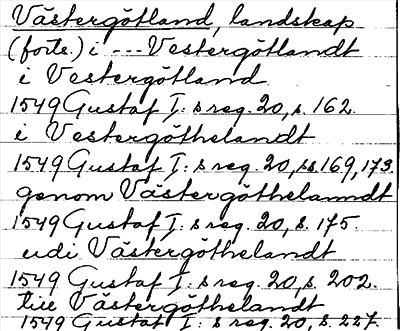 Västergötland, landskap
(forts.) i --- Vestergötlandt
i Vestergötland
1549 Gustaf I: s reg. 20, s. 162.
i Vestergöthelandt
1549 Gustaf I: s reg. 20, ss. 169, 173.
genom Västergöthelanndt
1549 Gustaf I: s reg. 20, s. 175.
udi Västergöthelandt
1549 Gustaf I: s reg. 20, s. 202.
till Västergöthelandt
1549 Gustaf I: s reg. 20, s. 227.